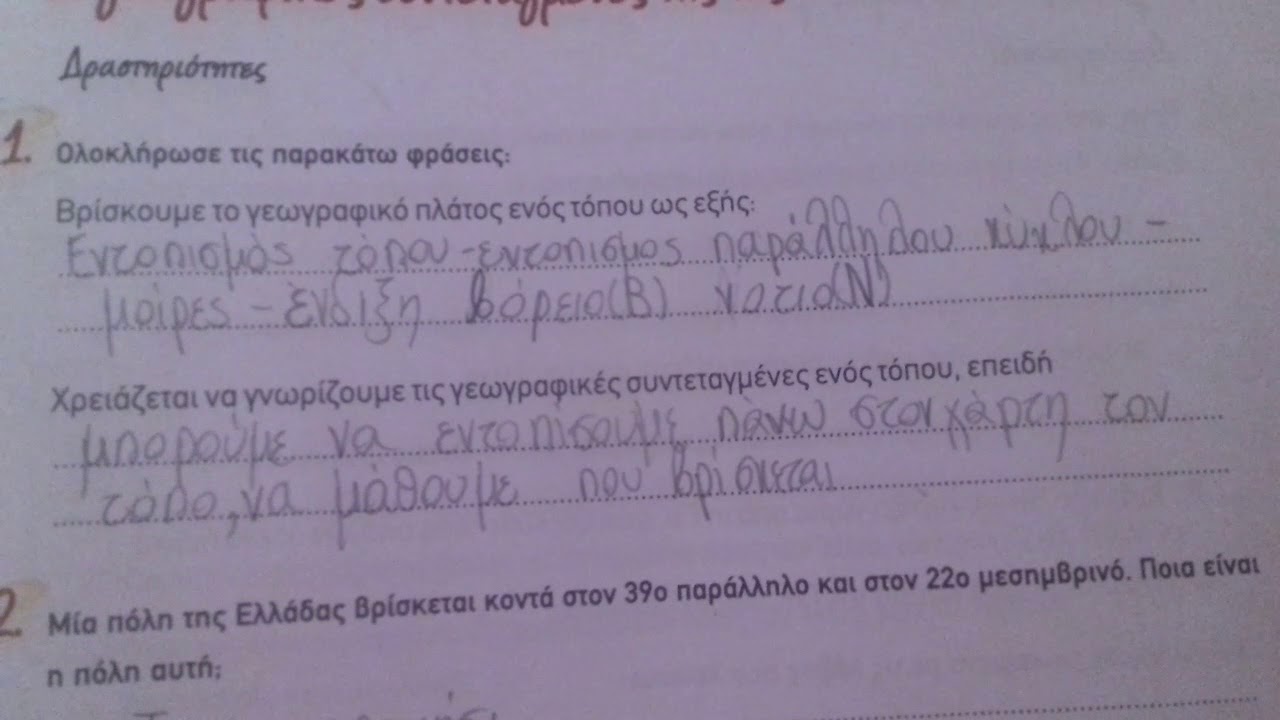 Δραστηριότητες
1. Ολοκλήρωσε τις παρακάτω φράσεις:
Βρίσκουμε το γεωγραφικό πλάτος ενός τόπου ως εξής:
Εντοπισμός τόπου - εντοπισμος παράλληλου κύκλου -
μοίρες - ένδιξη Βόρειο(Β) νοτιο(Ν)
Χρειάζεται να γνωρίζουμε τις γεωγραφικές συντεταγμένες ενός τόπου, επειδή
μπορούμε να εντοπίσουμε πάνω στον χάρτη τον
τόπο, να μάθουμε που βρίσκεται
2. Μία πόλη της Ελλάδας βρίσκεται κοντά στον 39ο παράλληλο και στον 22ο μεσημβρινό. Ποια είναι
η πόλη αυτή;